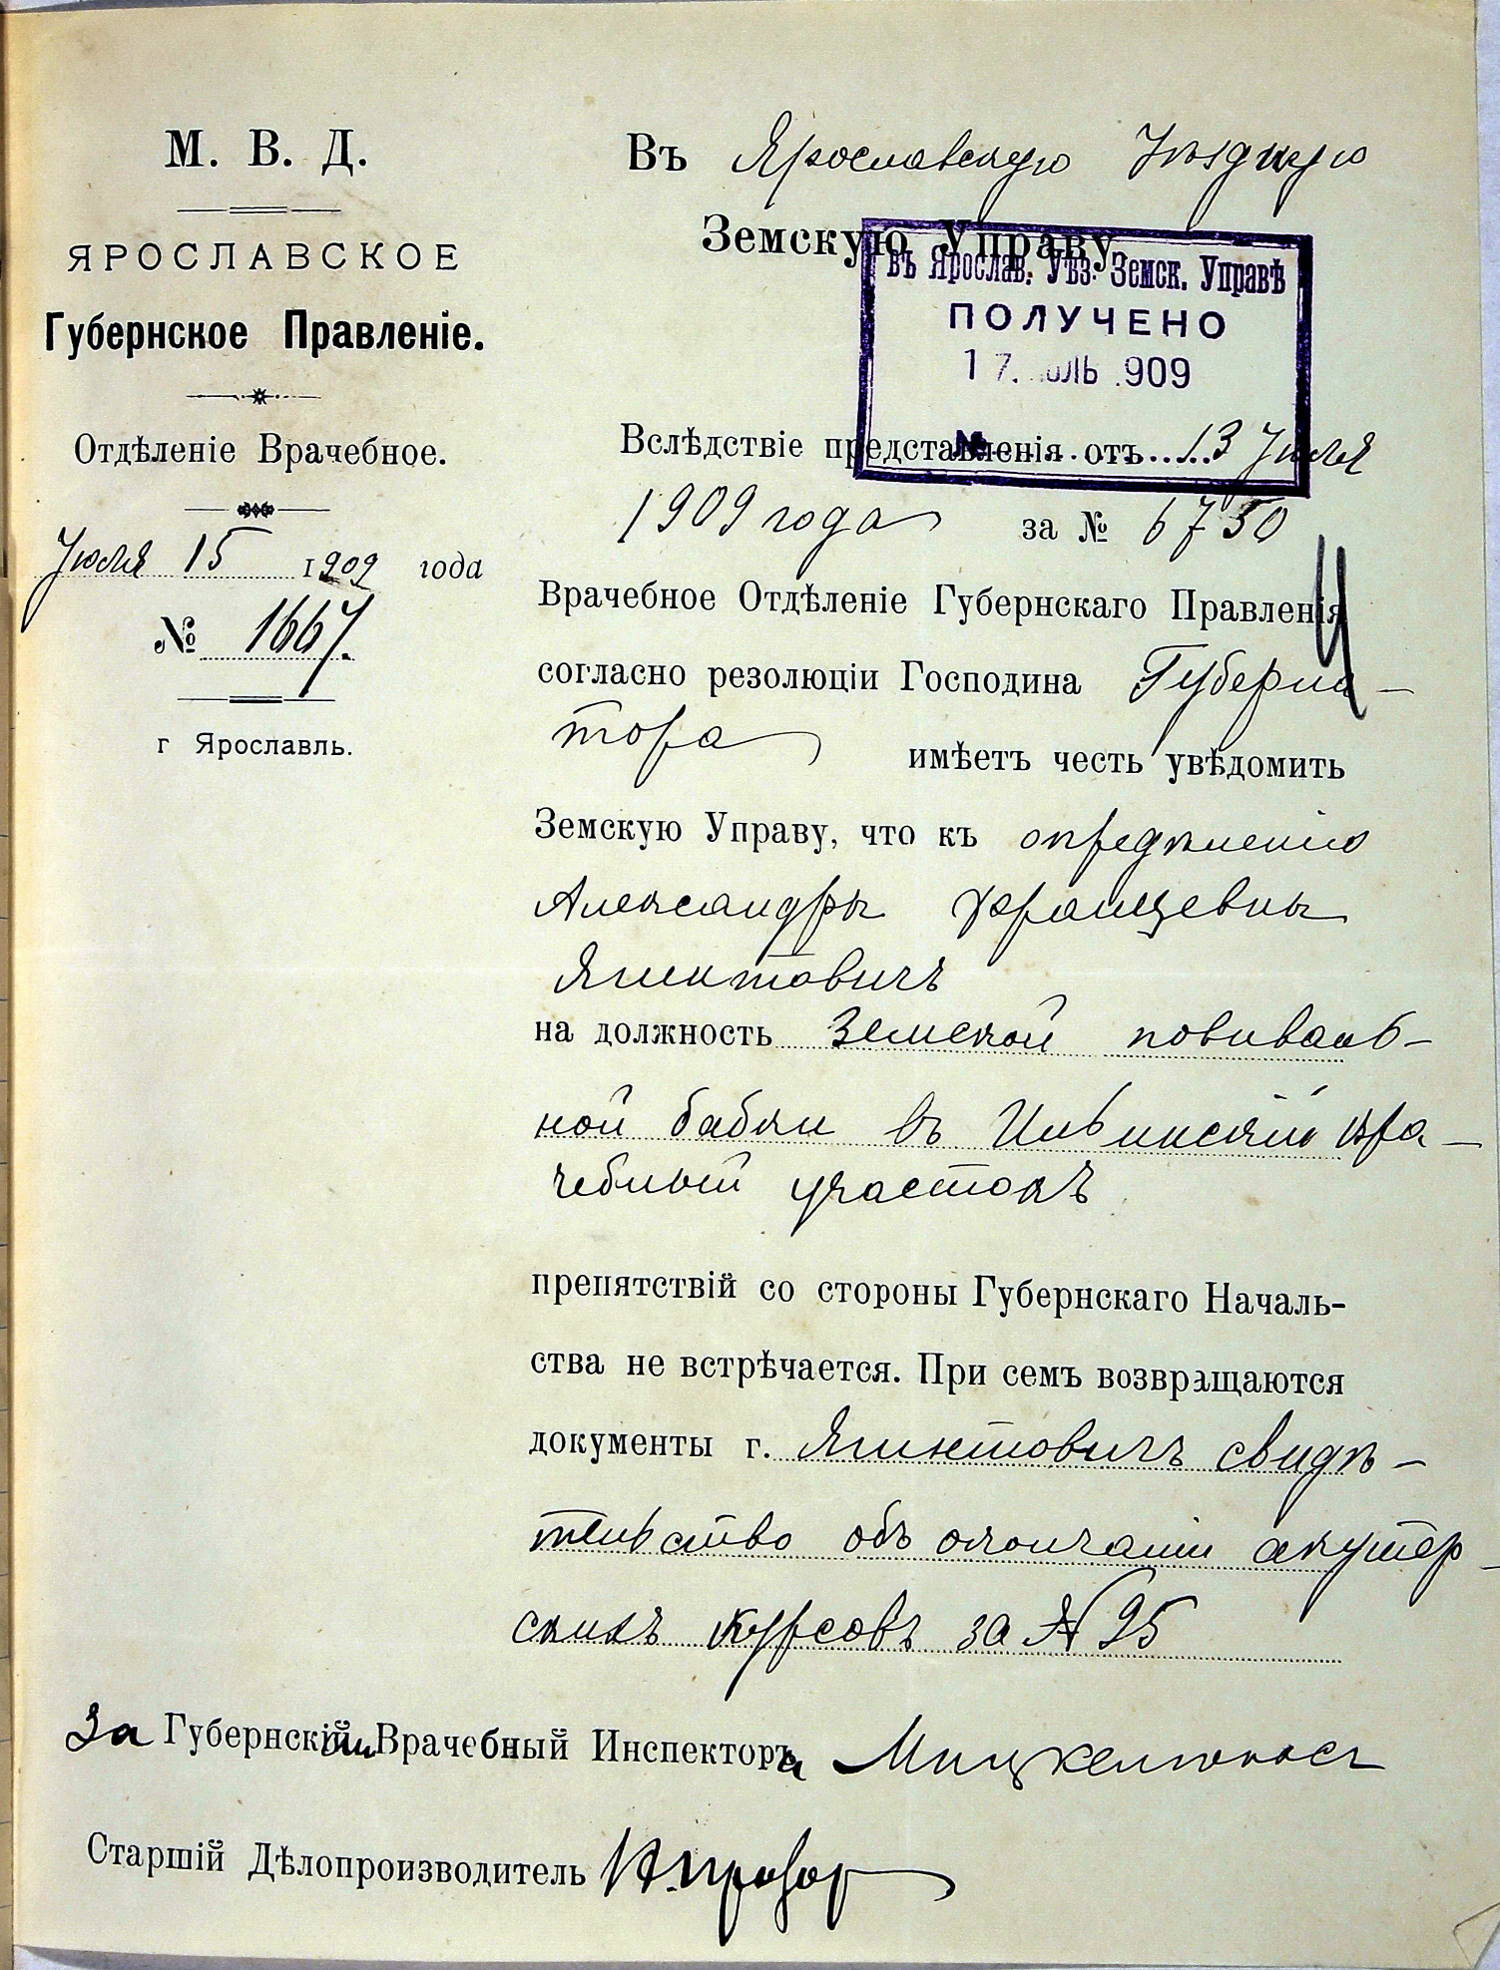 М. В. Д.
ЯРОСЛАВСКОЕ
Губернское Правленіе.
Отдѣленіе Врачебное.
Іюля 15 1909 года
№ 1667.
г Ярославль.
Въ Ярославскую Уѣздную
Земскую Управу
въ Ярослав. Уѣз. Земск. Управѣ
ПОЛУЧЕНО
17. юль .909
№
Вслѣдствіе представленія отъ 13 Іюля
1909 года за № 6750
Врачебное Отдѣленіе Губернскаго Правленія
согласно резолюціи Господина Губерна-
тора имѣетъ честь увѣдомить
Земскую Управу, что къ опредѣленію
Александры Францевны
Ягинтовичъ
на должность Земской повиваль-
ной бабки въ Ильинскій вра-
чебный участокъ
препятствій со стороны Губернскаго Началь-
ства не встрѣчается. При семъ возвращаются
документы г. Ягинтовичъ свидѣ-
тельство объ окончаніи акушер-
скихъ курсовъ за № 95
За Губернскій Врачебный Инспектора
Старшій Дѣлопроизводитель